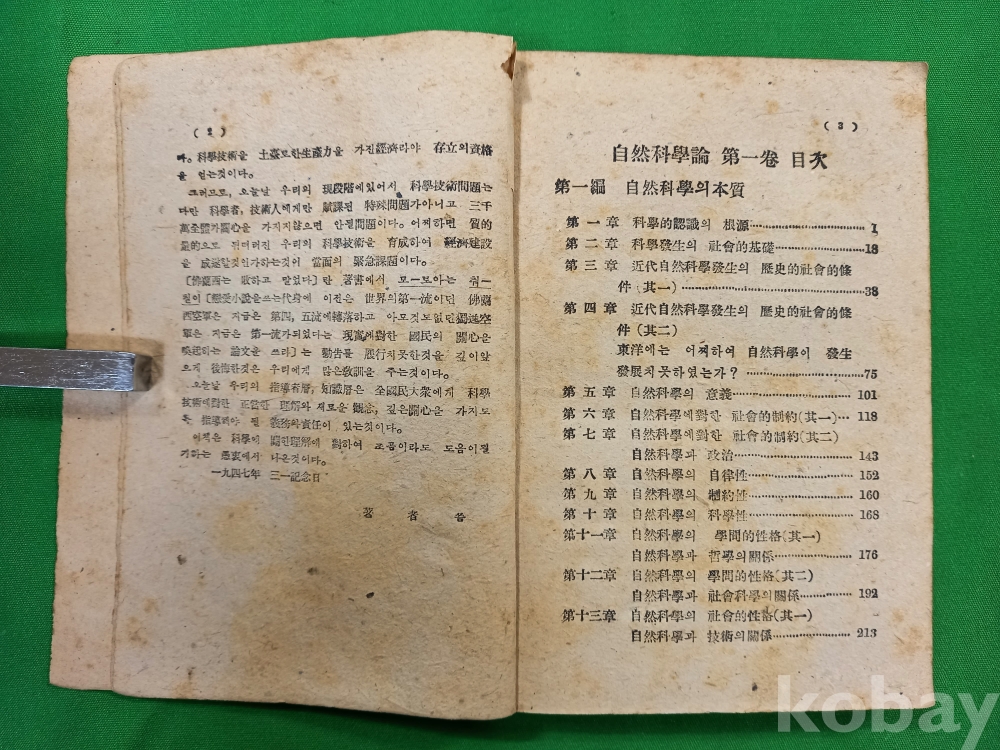 ( 2 )
다。科學技術을 土臺로한生產力을 가진經濟라야 存立의資格
을 얻는것이다。
그러므로, 오늘날 우리의 現段階에있어서 科學技術問題는
다만 科學者, 技術人에게만 賦課된 特殊問題가아니고 三千
萬全體가關心을 가지지않으면 안될問題이다。어찌하면 質的
量的으로 뒤떠러진 우리의 科學技術을 育成하여 經濟建設
을 成遂할것인가하는것이 當面의 緊急課題이다。
[佛蘭西는 敗하고 말었다]란 著書에서 모ー로아는
[戀愛小說을쓰는代身에 이전은 世界의第一流이던 佛蘭
西空軍은 지금은 第四, 五流에轉落하고 아모것도없던獨逸空
軍은 지금은 第一流가되었다는 現實에對한 國民의 關心은
喚起하는 論文을 쓰라]는 勸告를 履行치못한것을 깊이앞
으게 後悔한것은 우리에게 많은敎訓을 주는것이다。
오늘날 우리의 指導者層, 知識層은 全國民大衆에게 科學
技術에對한 正當한 理解와 새로운 觀念, 깊은關心을 가지도
록 指導해야 될 義務와責任이 있는것이다。
이책은 科學에 關한理解에 對하여 조곰이라도 도음이될
가하는 愚衷에서 나온것이다。
一九四七年 三一記念日
著 者 啓
( 3 )
自然科學論 第一卷 目次
第一編 自然科學의本質
第 一 章 科學的認識의 根源 1
第 二 章 科學發生의 社會的基礎 18
第 三 章 近代自然科學發生의 歷史的社會的條
件(其一) 38
第 四 章 近代自然科學發生의 歷史的社會的條
件(其二)
東洋에는 어찌하여 自然科學이 發生
發展치못하였는가? 75
第 五 章 自然科學의 意義 101
第 六 章 自然科學에對한 社會的制約(其一) 118
第 七 章 自然科學에對한 社會的制約(其二)
自然科學과 政治 143
第 八 章 自然科學의 自律性 152
第 九 章 自然科學의 制約性 160
第 十 章 自然科學의 科學性 168
第十一章 自然科學의 學問的性格(其一)
自然科學과 哲學의關係 176
第十二章 自然科學의 學問的性格(其二)
自然科學과 社會科學의關係 192
第十三章 自然科學의 社會的性格(其一)
自然科學과 技術의關係 213
kobay